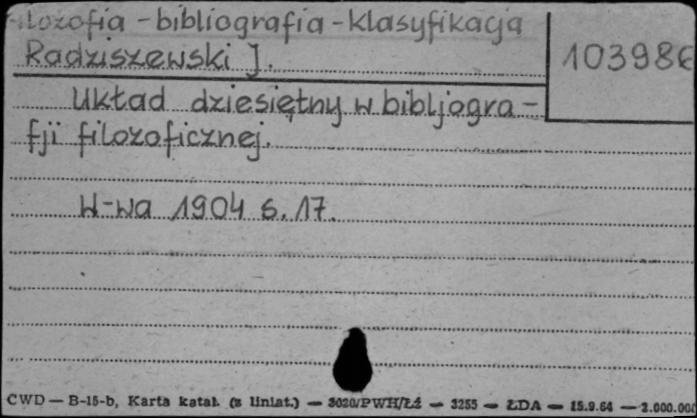 filozofia - bibliografia - klasyfikacja
Radziszewski J.
103986
Układ dziesiętny w bibljogra-
fji filozoficznej.
W-wa 1904 s. 17.
CWD — B-15-b, Karta katal. (z liniat.) — 3020/PWH/Łź — 3255 — ŁDA — 15.9.64 — 2.000.00